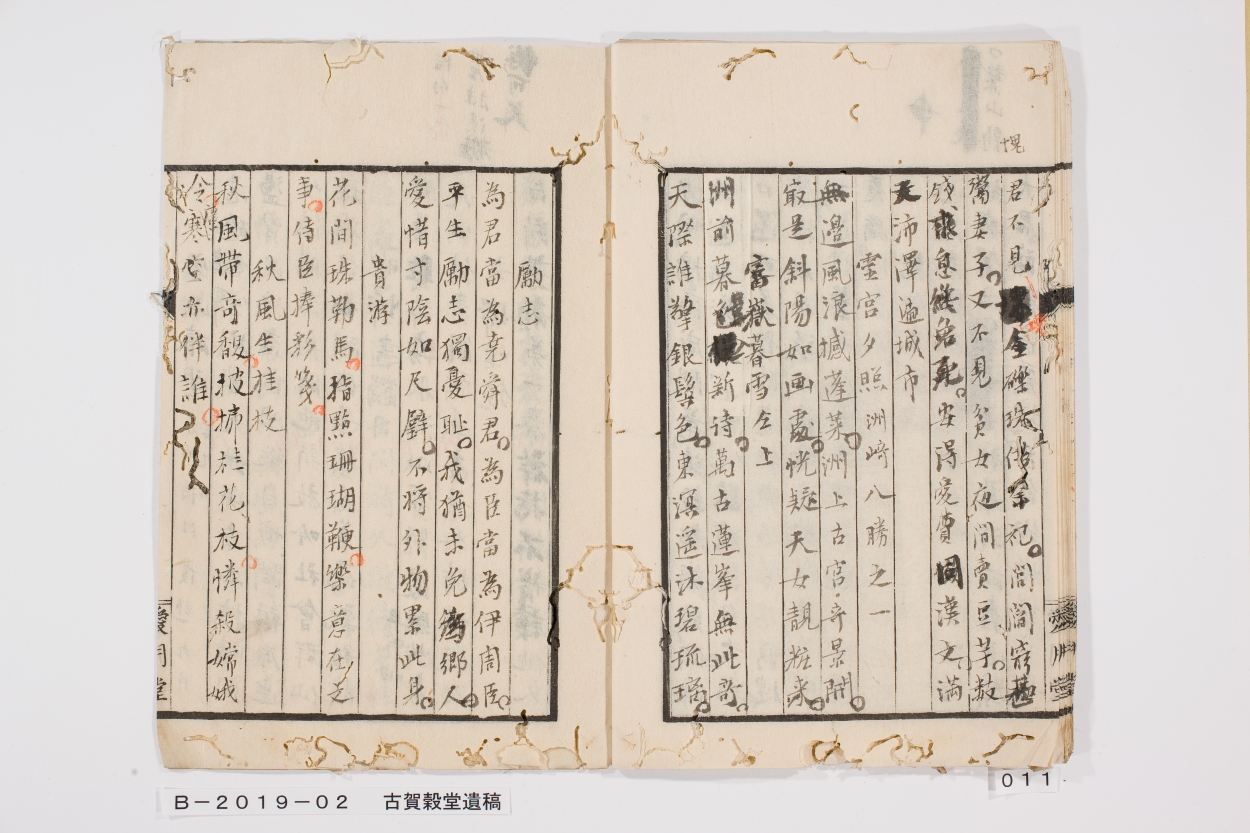 愧
君不見金礫珠祭祀閭閻寠甚
鬻妻子又不見貧女夜間賣豆芋數
錢求息終免死安得賣同漢文滿
天沛澤遍城市
霊宮夕照洲崎八勝之一
無邊風浪撼蓬萊洲上古宮奇景開
㝡是斜陽如画處恍疑天女靚粧来
富嶽暮雪仝上
洲前暮色新詩萬古蓮峯無此奇
天際誰擎銀髮色東溟遥沐碧琉璃
勵志
為君當為尭舜君為臣當為伊周臣
平生勵志獨憂耻我猶未免為郷人
愛惜寸陰如尺璧不將外物累此身
貴游
花間珠勒馬指點珊瑚鞭樂意在之
事侍臣捧彩箋
秋風生桂枝
秋風帯奇馥披拂桂花枝憐殺嫦娥
冷寒空亦伴誰
愛月堂
愛月堂
011
B－2019－02　古賀穀堂遺稿